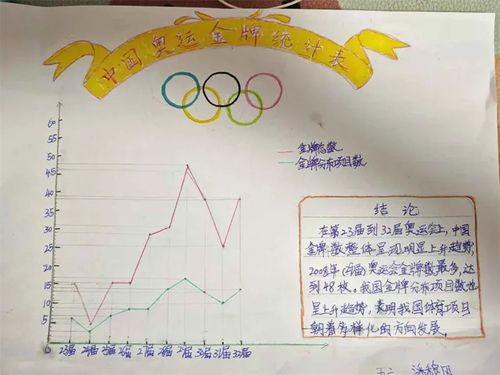 中国奥运金牌统计表
金牌总数
金牌分布项目数
60
55
50
45
40
35
30
25
20
15
10
5
0
23届 24届 25届 26届 27届 28届 29届 30届 31届 32届
结论
在第23届到32届奥运会上,中国
金牌数整体呈现明显上升趋势,
2008年(29届)奥运会金牌数最多,达
到48枚。我国金牌分布项目数也
呈上升趋势,表明我国体育项目
朝着多样化的方向发展。